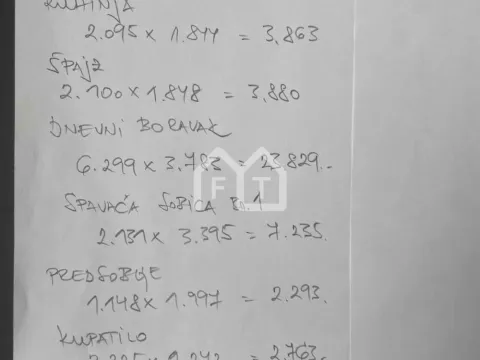 KUHINJA
2.095 x 1.844 = 3,863
ŠPAJZ
2.100 x 1.848 = 3,880
DNEVNI BORAVAK
6.299 x 3.783 = 23.829.
SPAVAĆA SOBICA Br.1
2.131 x 3.395 = 7.235.
PREDSOBLJE
1.148 x 1.997 = 2.293.
KUPATILO
= 2.763.
FT